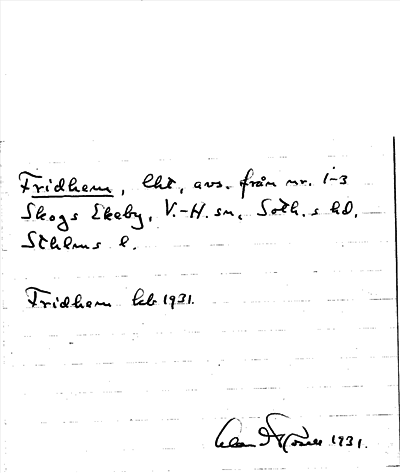 Fridhem, lht, avs. från nr. 1-3
Skogs Ekeby, V.-H. sn, Soth.s hd,
Sthlms l.
Fridhem kb 1931.
1931.